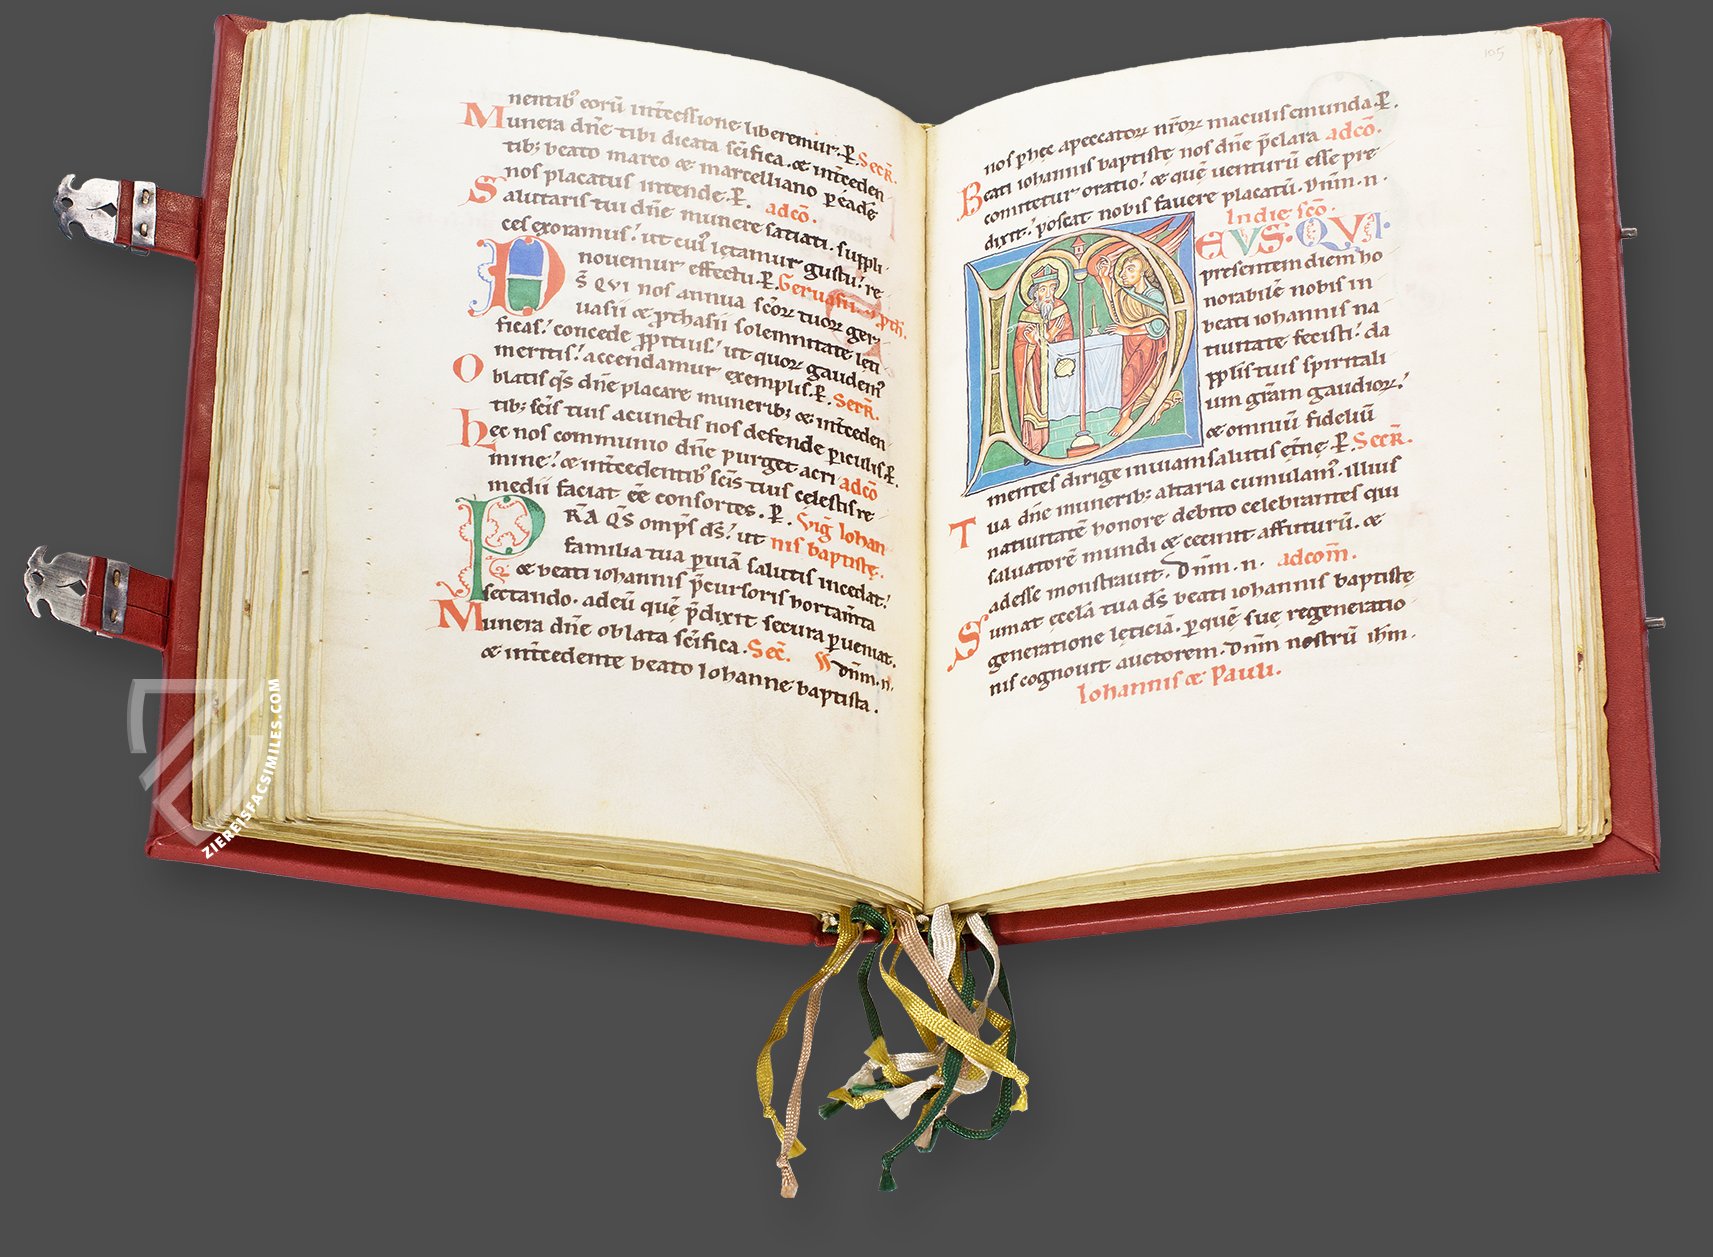 nentib' eorū int̄cessione liberemur. P̲. Secr̄.
Munera dn̄e tibi dicata sc̄ifica. & int̄ceden
tib; beato marco & marcelliano p̲ eadē
nos placatus intende. P̲. adcō.
Salutaris tui dn̄e munere satiati. suppli
ces exoramus! ut cui' lętamur gustu! re
nouemur effectu. P̲. Geruasii. & p̄th.
DS̄ QVI nos annua sc̄oꝝ tuoꝝ ger
uasii & p̄thasii solemnitate leti
ficas! concede p̲p̲itius! ut quoꝝ gaudem'
meritis! accendamur exemplis. P̲. Secr̄.
Oblatis qs̄ dn̄e placare munerib; & int̄ceden
tib; sc̄is tuis a cunctis nos defende p̲iculis. P̲.
hec nos communio dn̄e purget a cri adcō
mine! & int̄cedentib' sc̄is tuis cęlestis re
medii faciat eē consortes. P̲. Vig̅ Iohan
PR̄A QS̄ omp̄s ds̄! ut nis baptistę.
familia tua p̲ uiā salutis incedat!
& beati iohannis p̄cursoris hortam̄ta
sectando. ad eū quē p̄dixit secura p̲ueniat.
Munera dn̄e oblata sc̄ifica. Sec̄. dn̄m. n.
& int̄cedente beato Iohanne baptista.
105
nos p̲ hęc a peccatoꝝ nr̄oꝝ maculis emunda. P̲.
Beati iohannis baptistę nos dn̄e p̄clara adcō.
comitetur oratio! & quē uenturū esse pre
dixit! poscat nobis fauere placatū. Dn̄m. n.
In die sc̄o.
DEVS. QVI.
presentem diem ho
norabilē nobis in
beati iohannis na
tiuitate fecisti! da
p̲p̲lis tuis spiritali
um gr̄am gaudioꝝ!
& omniū fideliū
mentes dirige in uiam salutis et̄nę. P̲. Secr̄.
Tua dn̄e munerib; altaria cumulam'. illius
natiuitatē honore debito celebrantes qui
saluatorē mundi & cecinit affuturū. &
adesse monstrauit. Dn̄m. n. adcom̄.
Sumat ęcclā tua ds̄ beati iohannis baptistę
generatione lęticiā. p̲ quē suę regeneratio
nis cognouit auctorem. Dn̄m nostrū ih̄m.
Iohannis & Pauli.
ZIEREISFACSIMILES.COM